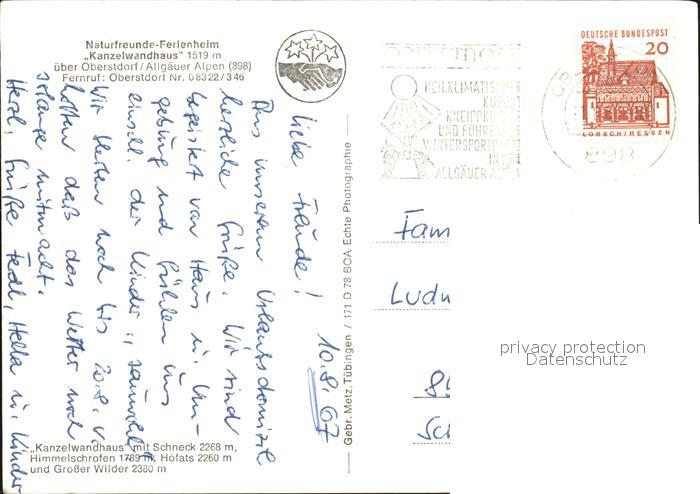 Naturfreunde-Ferienheim
„Kanzelwandhaus" 1519 m
über Oberstdorf / Allgäuer Alpen (898)
Fernruf: Oberstdorf Nr. 08322/346
10.8.67
Liebe Freunde!
Aus unserem Urlaubsdomizil
herzliche Grüße. Wir sind
begeistert von Haus u. Um-
gebung und fühlen uns
einschl. der Kinder „sauwohl".
Wir bleiben noch bis 20.8. u.
hoffen daß das Wetter noch
solange mitmacht.
Herzl. Grüße Ferdl, Hella u. Kinder
„Kanzelwandhaus" mit Schneck 2268 m,
Himmelschrofen 1789 m, Höfats 2260 m
und Großer Wilder 2380 m
Gebr. Metz, Tübingen / 171 D 78 BCA Echte Photographie
HEILKLIMATISCHER
KURORT
KNEIPPKURORT
UND FÜHRENDER
WINTERSPORTPLATZ
IN DEN
ALLGÄUER ALPEN
898
DEUTSCHE BUNDESPOST
20
LORSCH/HESSEN
Fam
Ludw
Sc
privacy protection
Datenschutz